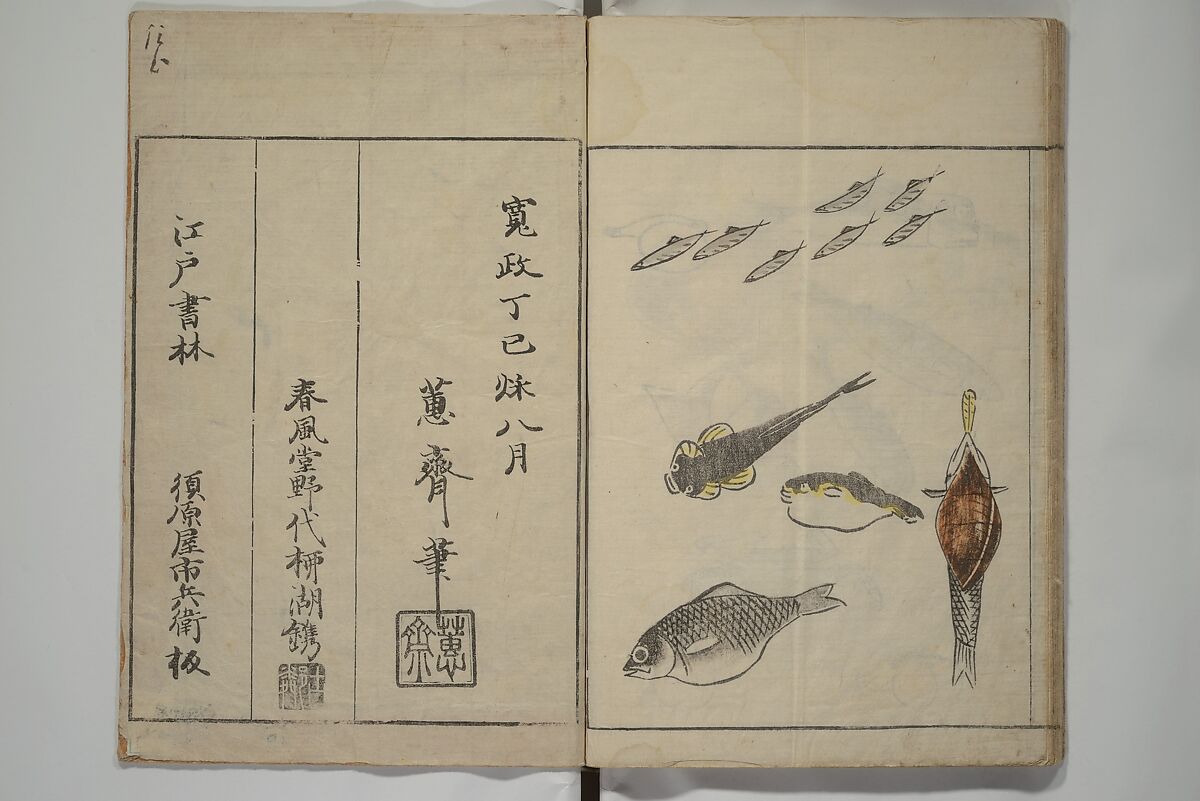 寛政丁巳烁八月
蕙齋筆
蕙齋
春風堂野代柳湖鐫
江戸書林
須原屋市兵衛板